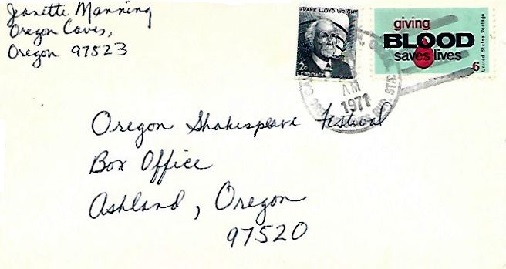 Jeanette Manning
Oregon Caves,
Oregon 97523
FRANK LLOYD WRIGHT
2¢
giving
BLOOD
saves lives
6
United States Postage
AM
1971
Oregon Shakespeare Festival
Box Office
Ashland, Oregon
97520